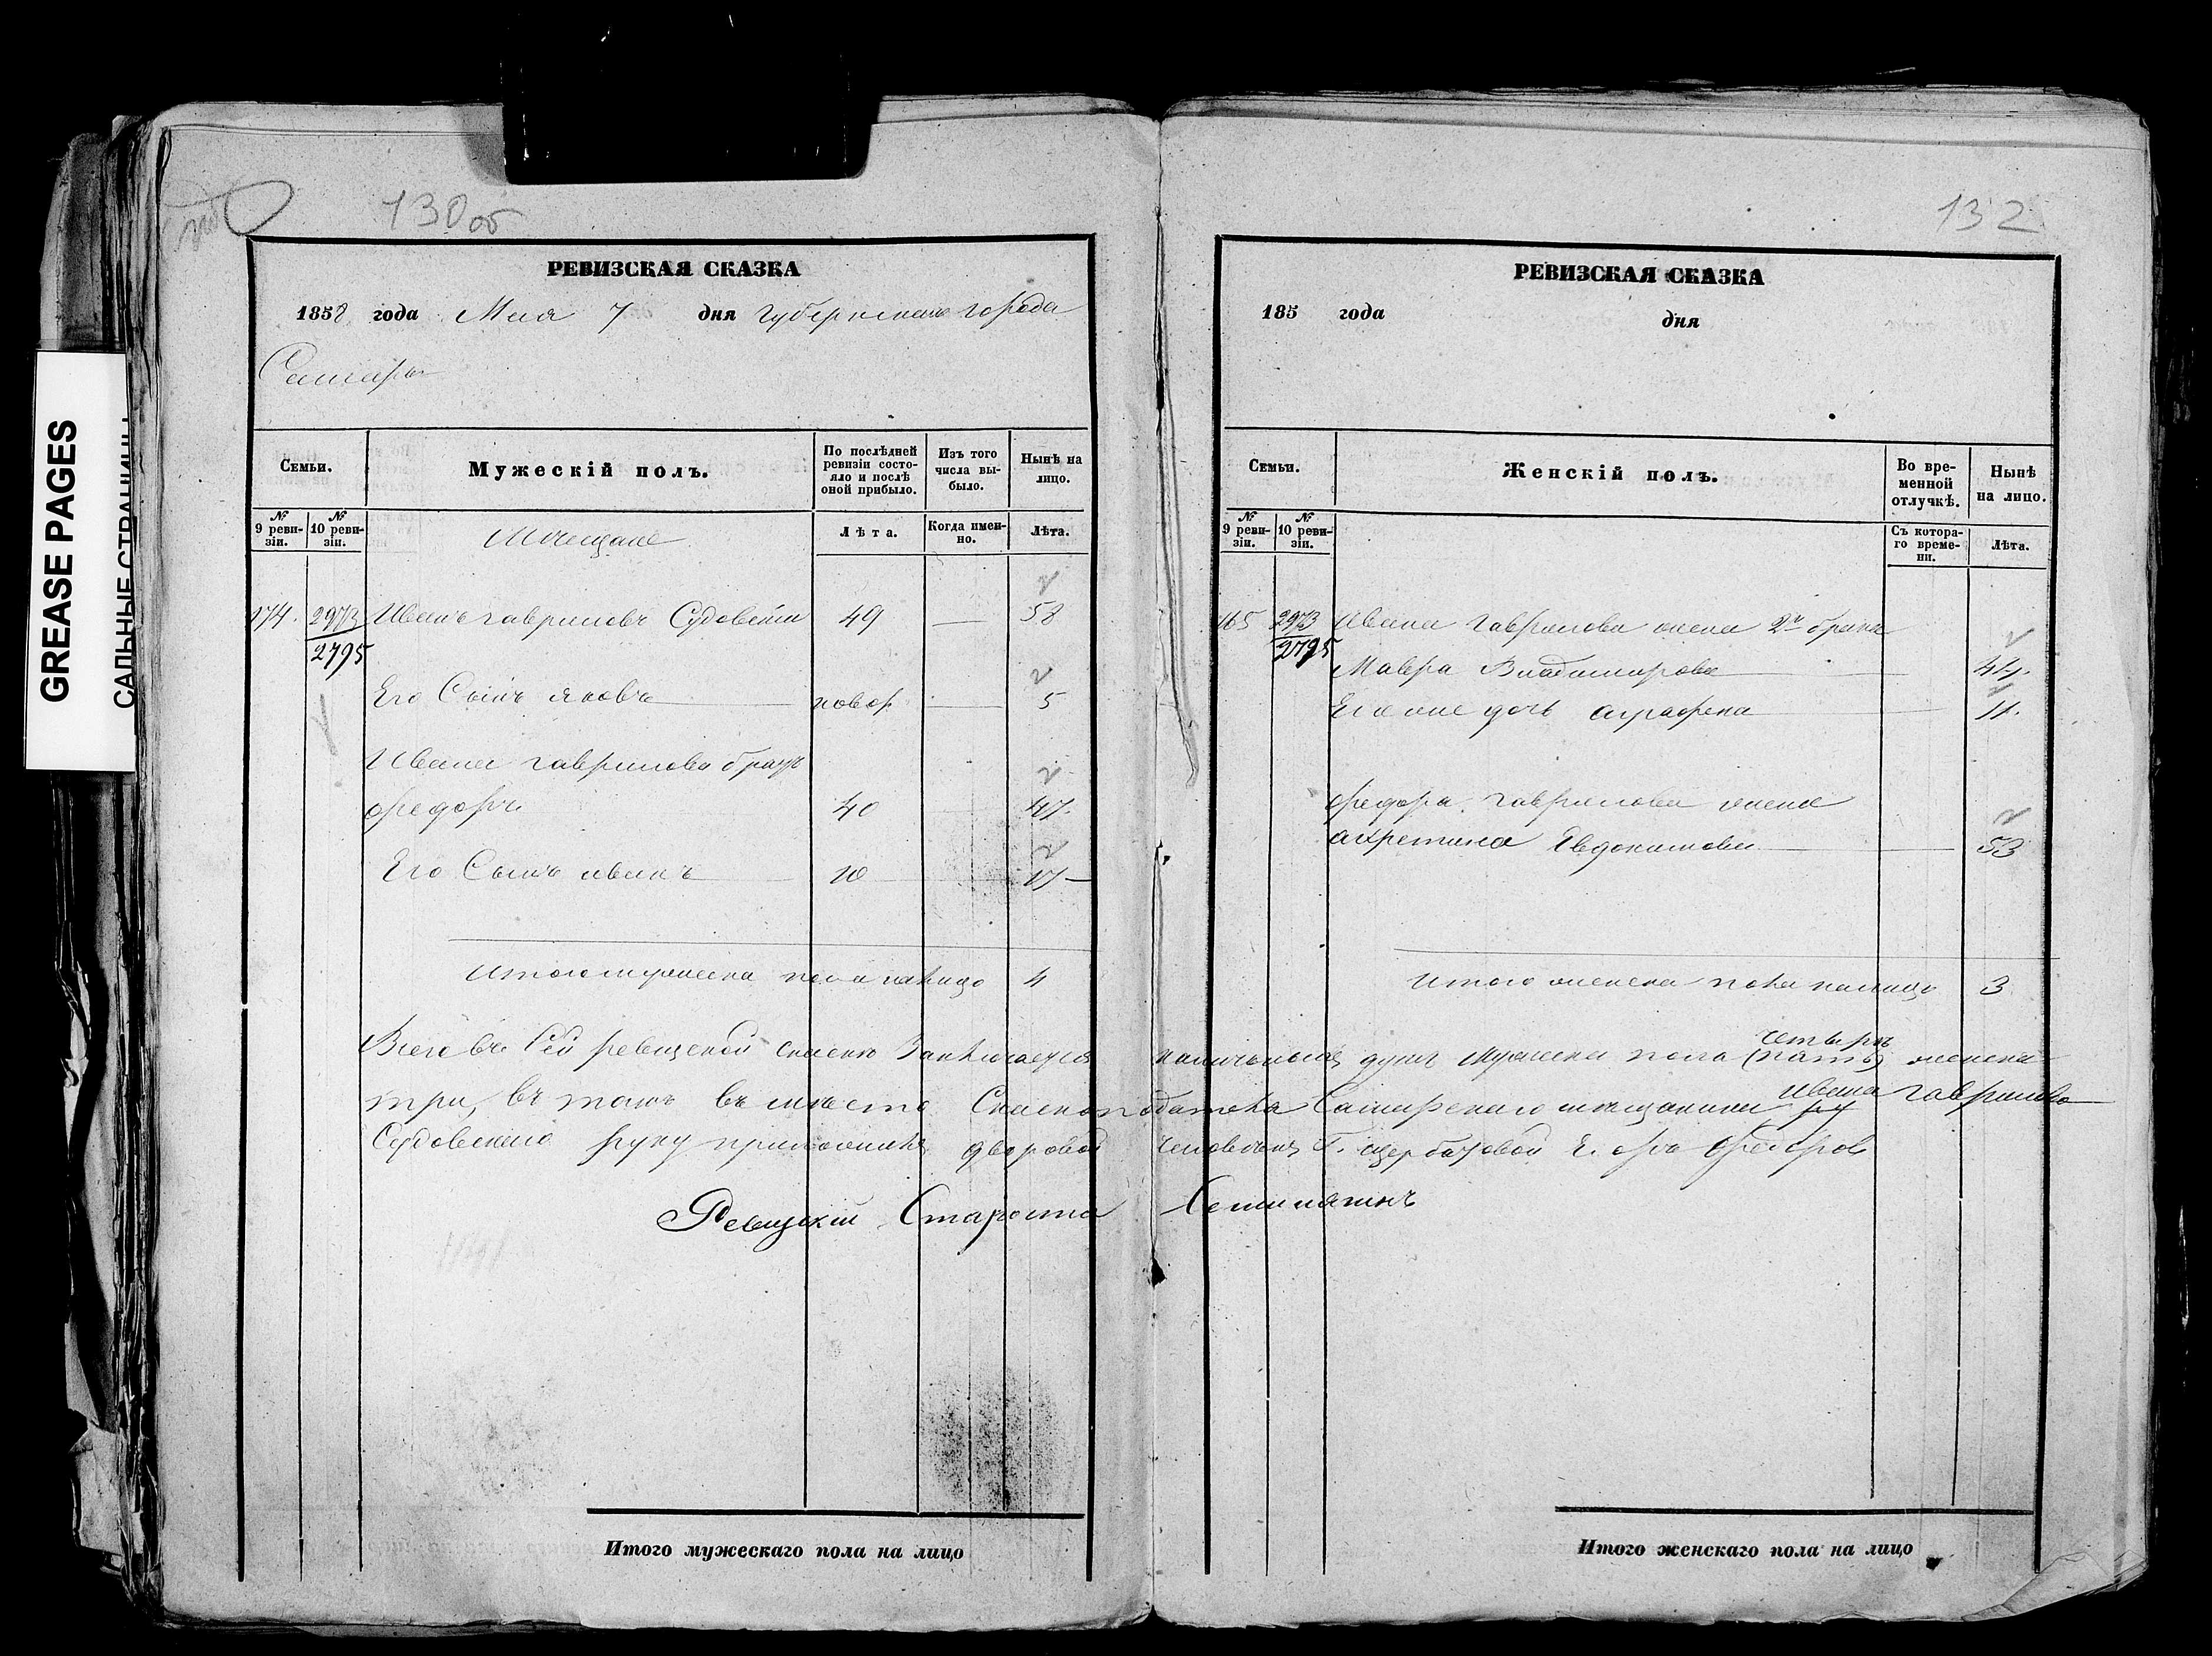 GREASE PAGES
САЛЬНЫЕ СТРАНИЦЫ
130 об
РЕВИЗСКАЯ СКАЗКА
1858 года Мая 7 дня губернскаго города
Самары
Семьи.
Мужескій полъ.
По послѣдней ревизіи состояло и послѣ оной прибыло.
Изъ того числа выбыло.
Нынѣ на лицо.
№ 9 ревизіи.
№ 10 ревизіи.
Мѣщане
Лѣта.
Когда именно.
Лѣта.
174. 2973 Иванъ гавриловъ Судовский 49 — 58
2795
Его Сынъ яковъ новор — 5
Ивана гаврилова братъ
федоръ 40 47.
Его Сынъ иванъ 10 17
Итого мужеска пола налицо 4
132
РЕВИЗСКАЯ СКАЗКА
185 года дня
Семьи.
Женскій полъ.
Во временной отлучкѣ.
Нынѣ на лицо.
№ 9 ревизіи.
№ 10 ревизіи.
Съ котораго времени.
Лѣта.
165 2973 Ивана Гаврилова жена 2го брака
2795
Мавра Владимирова 44.
Его же дочь аграфена 11.
федора гаврилова жена
Евдокимова 53
Итого женска пола налицо 3
Всего въ Сей ревизской сказке Заключается наличныхъ душъ мужеска пола четыре (пять) женска
три, въ томъ въ место Сказкоподателя Самарскаго мещанина ивана гаврилова
Судовскаго руку приложилъ дворовой человекъ Г. щербатовой Егоръ Федоров
Ревизский Староста
Итого мужескаго пола на лицо
Итого женскаго пола на лицо